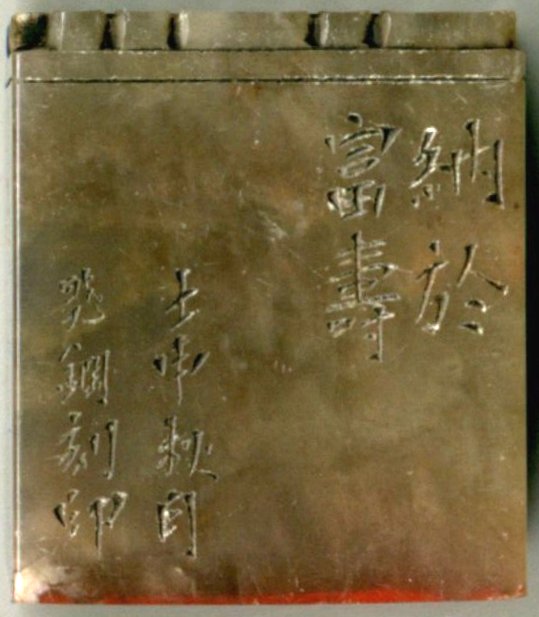 納於
富壽
壬申秋
鋼刻印